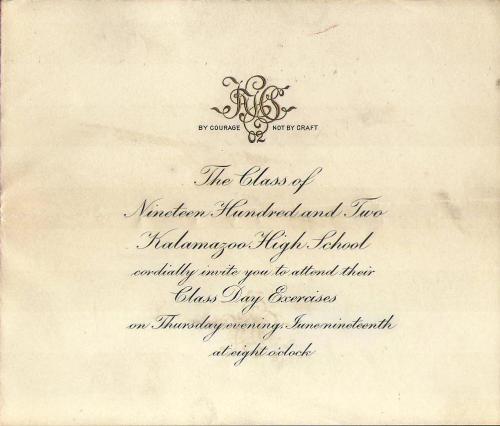 KHS
BY COURAGE NOT BY CRAFT
02
The Class of
Nineteen Hundred and Two
Kalamazoo High School
cordially invite you to attend their
Class Day Exercises
on Thursday evening, June nineteenth
at eight o'clock